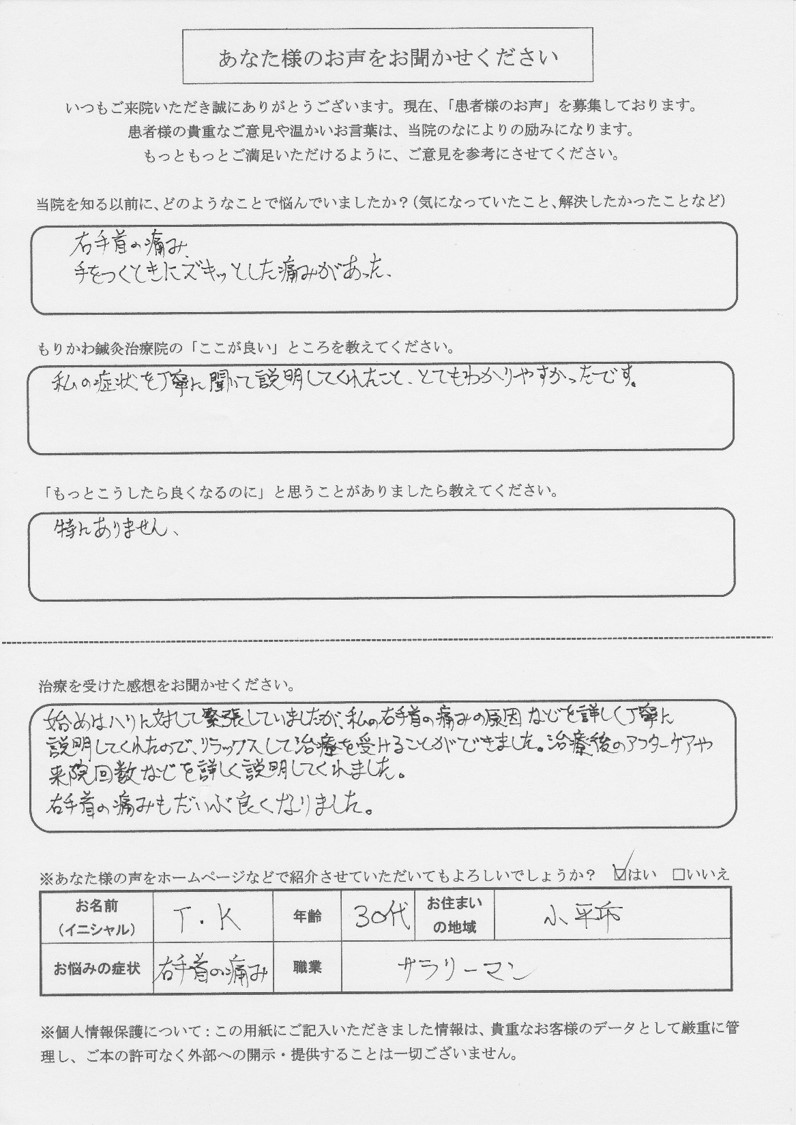 あなた様のお声をお聞かせください
いつもご来院いただき誠にありがとうございます。現在、「患者様のお声」を募集しております。
患者様の貴重なご意見や温かいお言葉は、当院のなによりの励みになります。
もっともっとご満足いただけるように、ご意見を参考にさせてください。
当院を知る以前に、どのようなことで悩んでいましたか？(気になっていたこと、解決したかったことなど)
右手首の痛み、
手をつくときにズキッとした痛みがあった、
もりかわ鍼灸治療院の「ここが良い」ところを教えてください。
私の症状を丁寧に聞いて説明してくれたこと、とてもわかりやすかったです。
「もっとこうしたら良くなるのに」と思うことがありましたら教えてください。
特にありません、
治療を受けた感想をお聞かせください。
始めはハリに対して緊張していましたが、私の右手首の痛みの原因などを詳しく丁寧に
説明してくれたので、リラックスして治療を受けることができました。治療後のアフターケアや
来院回数などを詳しく説明してくれました。
右手首の痛みもだいぶ良くなりました。
※あなた様の声をホームページなどで紹介させていただいてもよろしいでしょうか？ ☑はい □いいえ
お名前(イニシャル) T.K 年齢 30代 お住まいの地域 小平市
お悩みの症状 右手首の痛み 職業 サラリーマン
※個人情報保護について：この用紙にご記入いただきました情報は、貴重なお客様のデータとして厳重に管
理し、ご本の許可なく外部への開示・提供することは一切ございません。